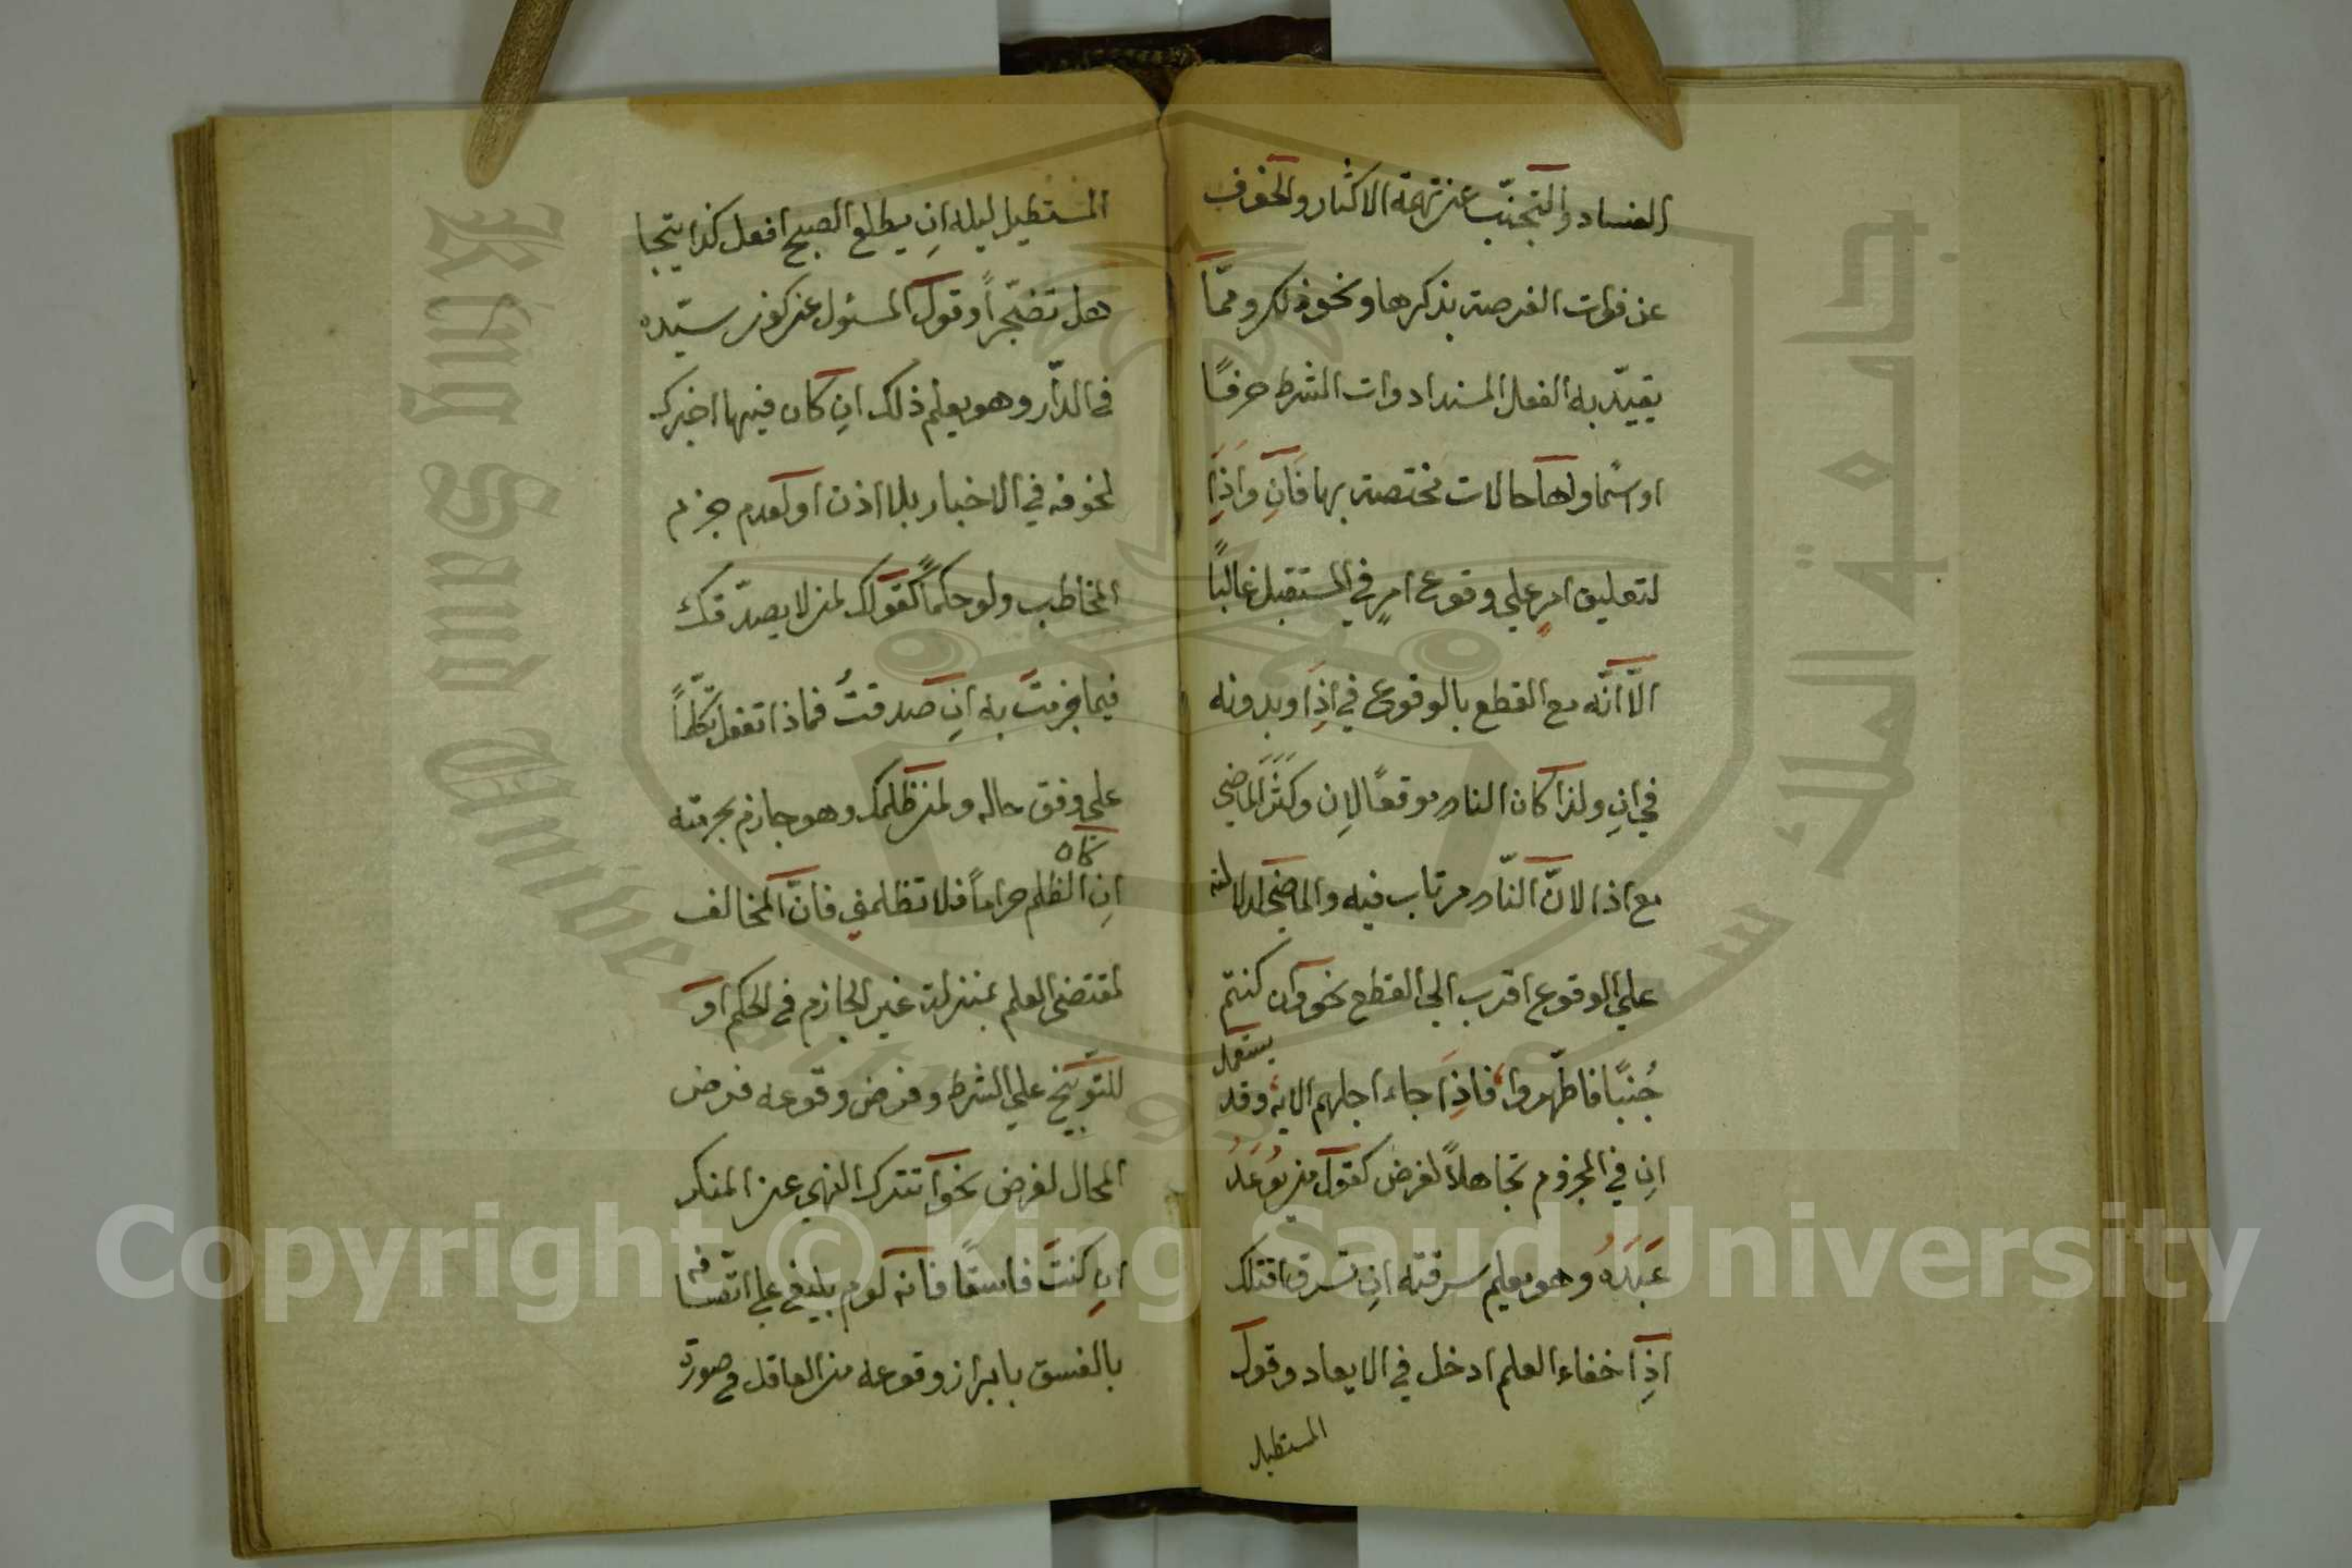 الفساد والتجنّب عن تهمة الاكثار والخوف
عن فوات الفرصة بذكرها ونحو ذلك وممّا
يقيّد به الفعل المسند ادوات الشرط حرفًا
او اسمًا ولها حالات مختصة بها فَاِن وَاِذَا
لتعليق امرٍ علي وقوع امرٍ في المستقبل غالبًا
الّا انّه مع القطع بالوقوع في اِذا وبدونه
في اِن ولذا كان النادر موقعًا لاِن وكَثُرَ الماضي
مع اذا لانّ النّادر مرتاب فيه والماضي لدلالته
علي الوقوع اقرب الي القطع نحو وان كنتم
جُنبًا فاطّهروا، فاِذَا جاء اجلهم الاية وقد يستعمل
اِن في المجزوم تجاهلًا لغرض كقول من يُوعِدُ
عَبدَهُ وهو يعلم سرقته اِن تسرق اقتلك
اِذ اخفاء العلم ادخل في الايعاد وقول
المستطيل
المستطيل ليله اِن يطلع الصبح افعل كذا يتجا
هل تضجّراً وقول المسئول عن كون سيّده
في الدّار وهو يعلم ذلك اِن كان فيها اخبرك
لخوفه في الاخبار بلا اذن او لعدم جزم
المخاطب ولو حكمًا كقولك لمن لا يصدّقك
فيما جزمتَ به اِن صدقتُ فماذا تفعل تكلّمًا
علي وفق حاله ولمن ظلمك وهو جازم بحرمته
اِن كان الظلم حراماً فلا تظلمني فانّ المخالف
لمقتضي العلم بمنزلة غير الجازم في الحكم او
للتّوبيخ علي الشرط وفرض وقوعه فرض
المحال لغرض نحو اتترك النهي عن المنكر
اِن كنتَ فاسقًا فانه لوم بليغ علي اتّصافه
بالفسق بابراز وقوعه من العاقل في صورة
Copyright © King Saud University
King Saud University
جامعة الملك سعود